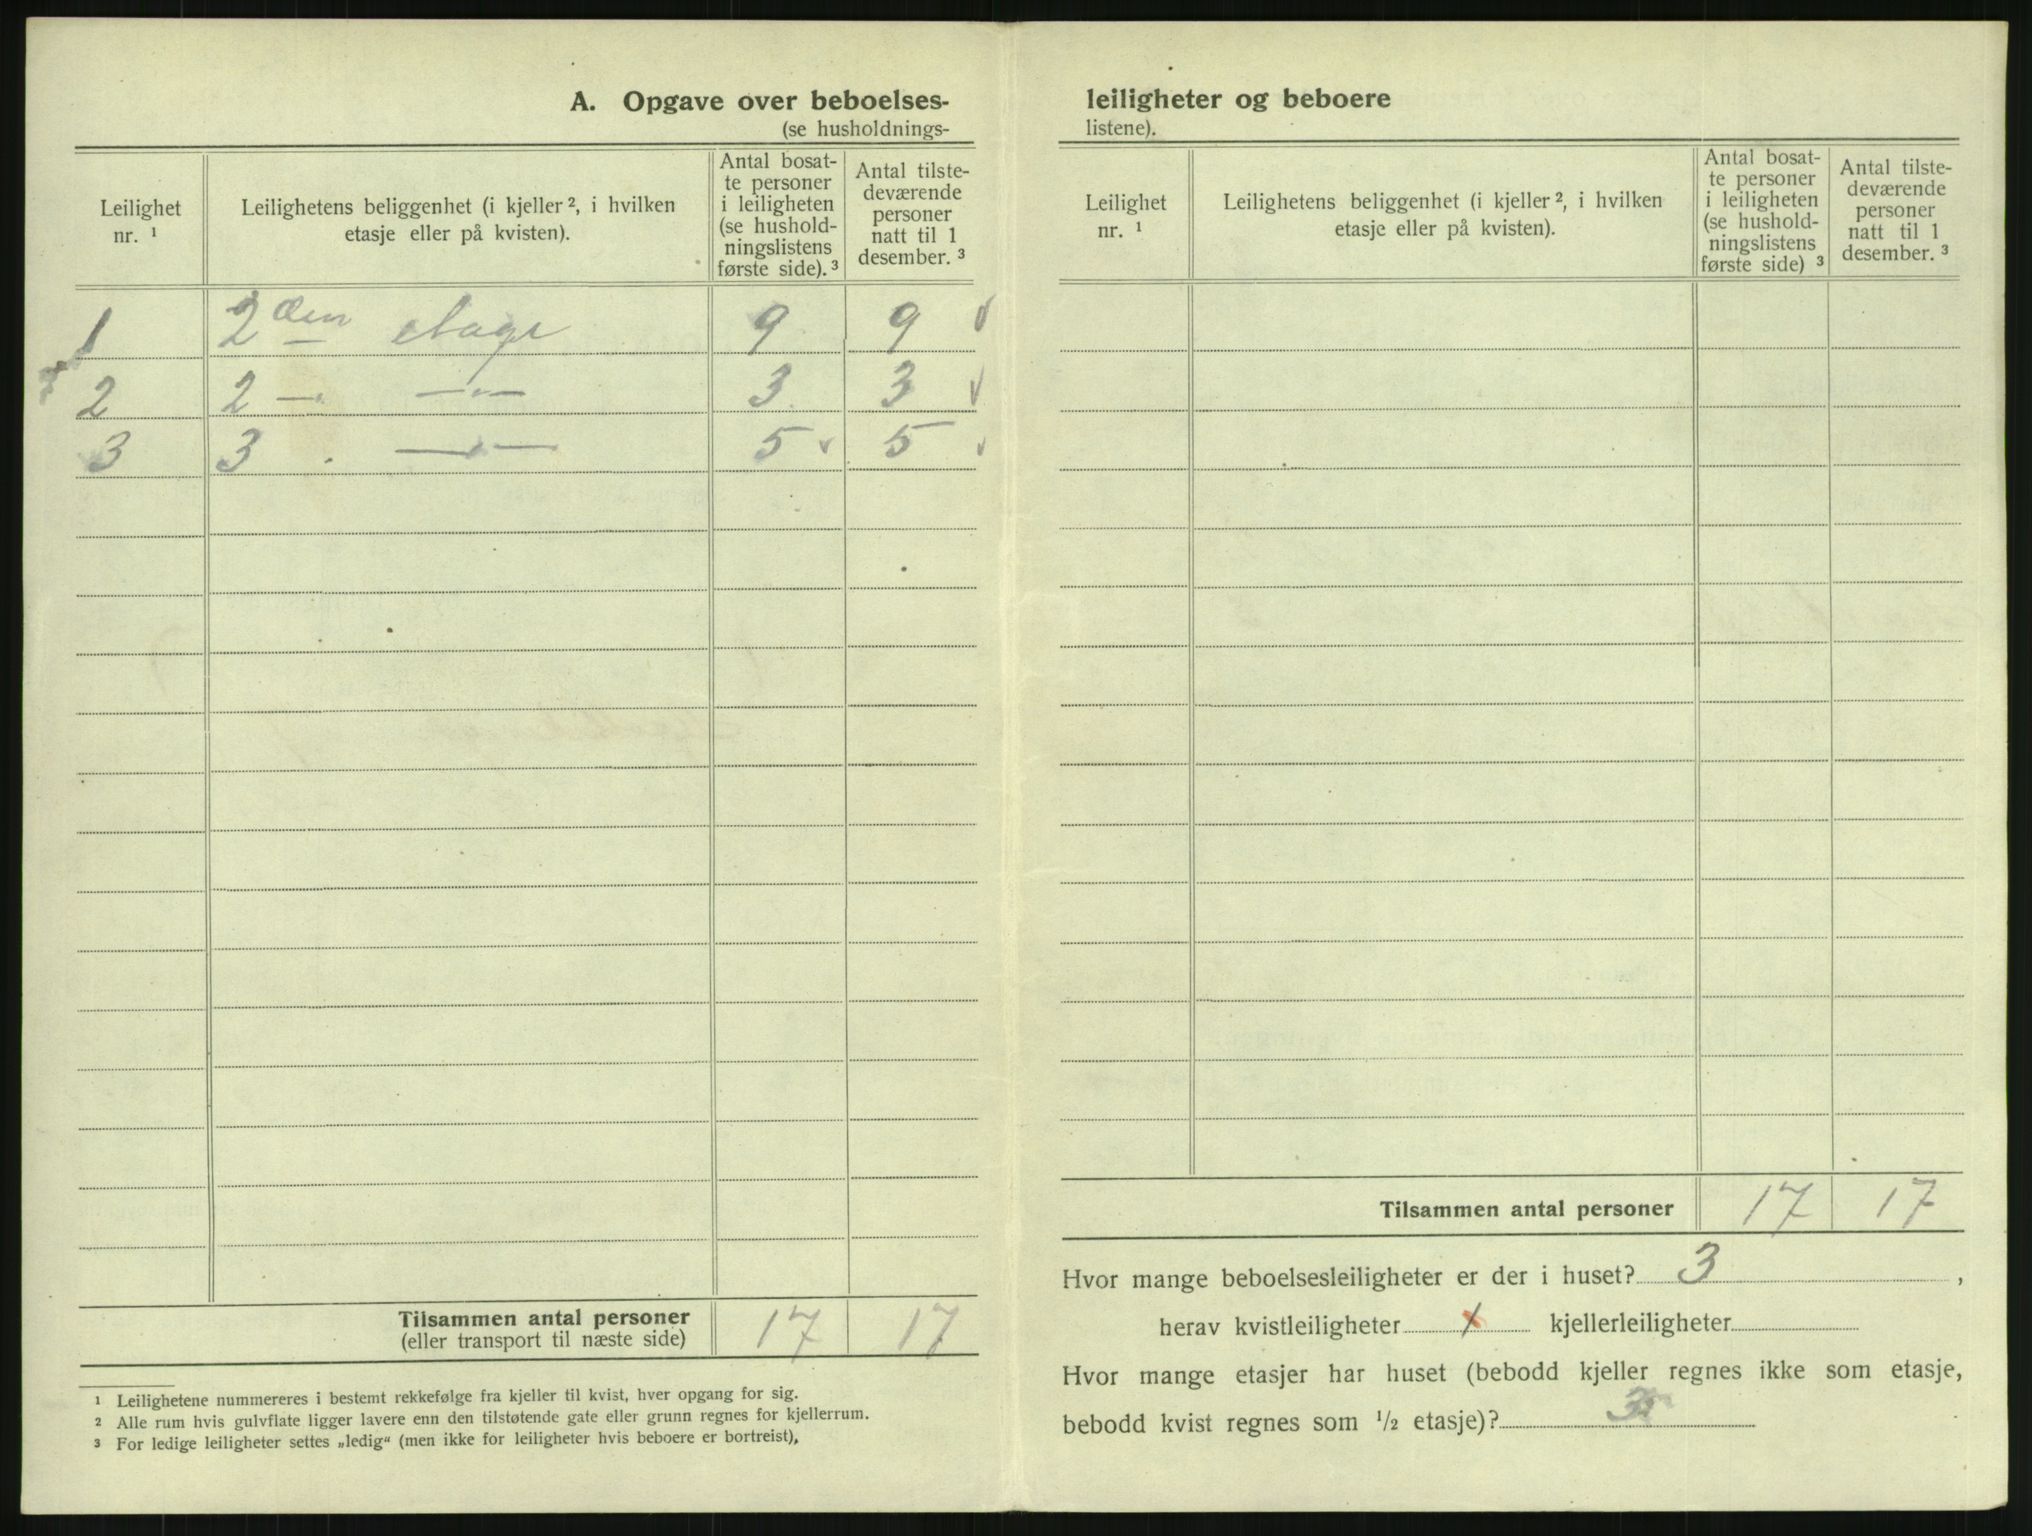 A. Opgave over beboelses-
(se husholdnings-
Leilighet nr. ¹
Leilighetens beliggenhet (i kjeller ², i hvilken etasje eller på kvisten).
Antal bosat-
te personer
i leiligheten
(se hushold-
ningslistens
første side). ³
Antal tilste-
deværende
personer
natt til 1
desember. ³
1 2den etage 9 9 √
2 2 — — " — 3 3 √
3 3 . — " — 5 √ 5 √
Tilsammen antal personer 17 17
(eller transport til næste side)
¹ Leilighetene nummereres i bestemt rekkefølge fra kjeller til kvist, hver opgang for sig.
² Alle rum hvis gulvflate ligger lavere enn den tilstøtende gate eller grunn regnes for kjellerrum.
³ For ledige leiligheter settes „ledig“ (men ikke for leiligheter hvis beboere er bortreist),
leiligheter og beboere
listene).
Leilighet nr. ¹
Leilighetens beliggenhet (i kjeller ², i hvilken etasje eller på kvisten).
Antal bosat-
te personer
i leiligheten
(se hushold-
ningslistens
første side) ³
Antal tilste-
deværende
personer
natt til 1
desember. ³
Tilsammen antal personer 17 17
Hvor mange beboelsesleiligheter er der i huset? 3 ,
herav kvistleiligheter x kjellerleiligheter
Hvor mange etasjer har huset (bebodd kjeller regnes ikke som etasje,
bebodd kvist regnes som ½ etasje)?